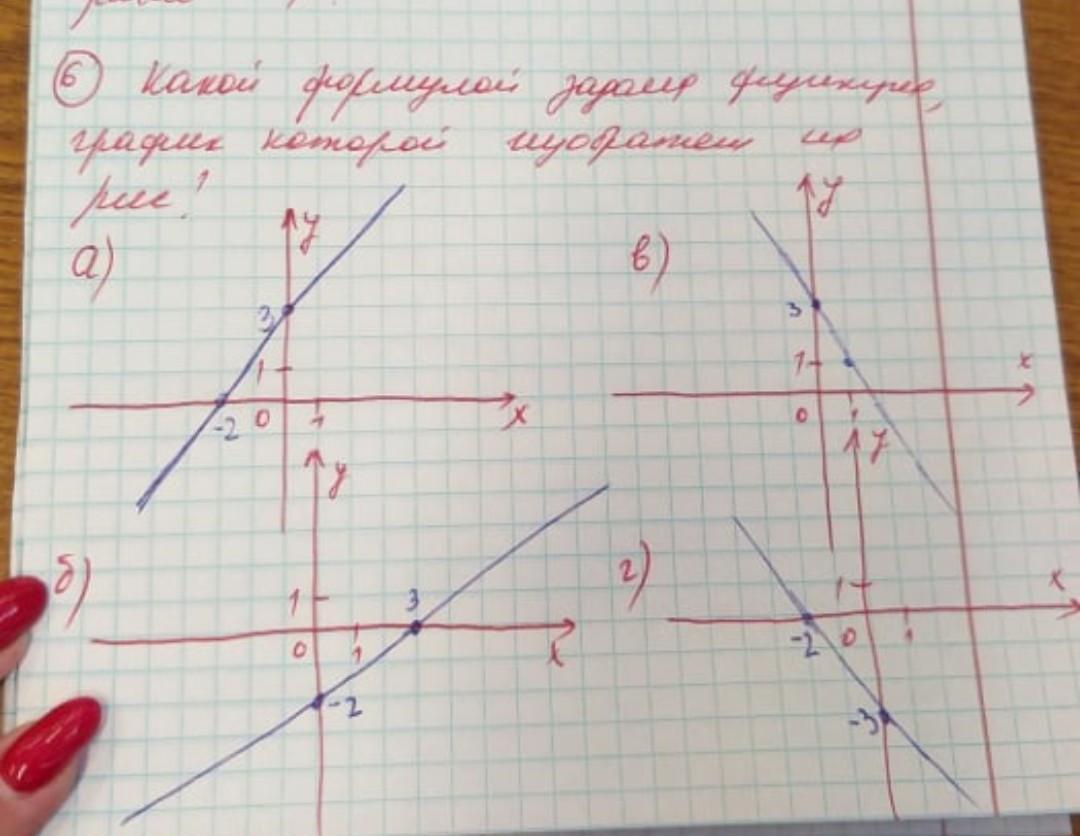 ⑥ Какой формулой задана функция,
график которой изображен на
рис?
а) y 3 1 -2 0 1 x
в) y 3 1 0 1 x
б) y 1 3 0 1 -2 x
г) y 1 x -2 0 1 -3